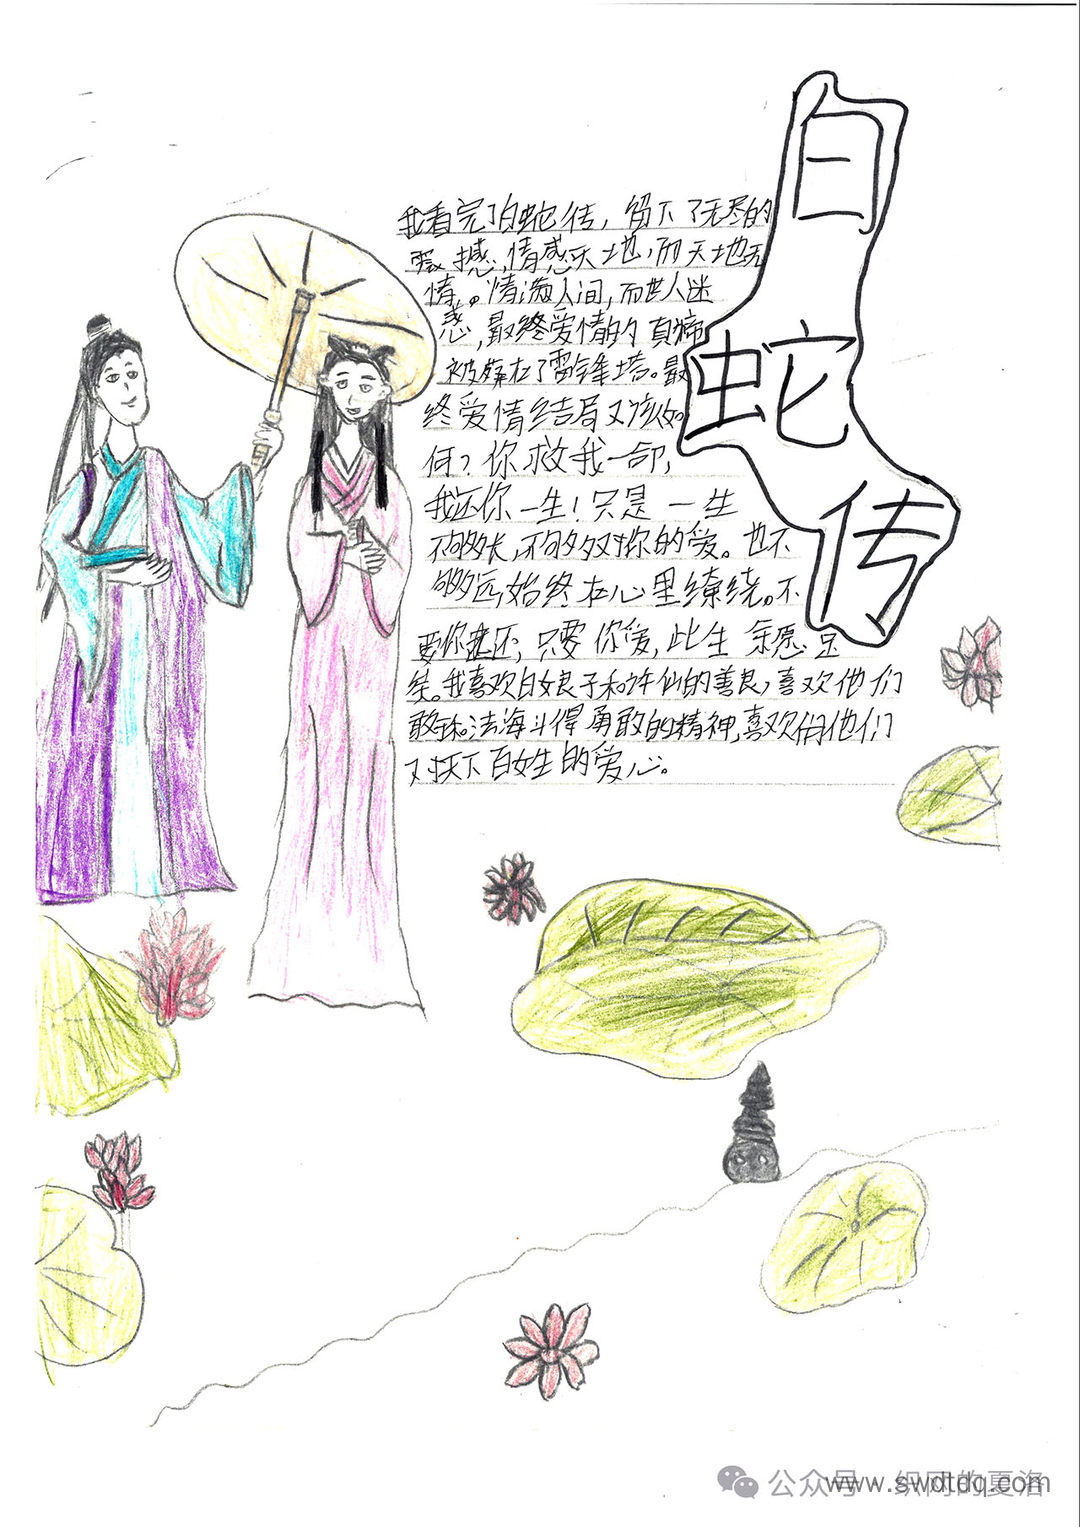 白
蛇
传
我看完了白蛇传，留下了无尽的
震撼，情感天地，而天地无
情。情满人间，而世人迷
惑，最终爱情的真谛
被葬在了雷锋塔。最
终爱情结局又该如
何？你救我一命，
我还你一生！只是一生
不够长，不够对你的爱。也不
够远，始终在心里缭绕。不
要你还，只要你爱，此生余愿足
矣。我喜欢白娘子和许仙的善良，喜欢他们
敢和法海斗得勇敢的精神，喜欢他们
对天下百姓的爱心。
公众号·织网的夏洛
www.swdtdq.com